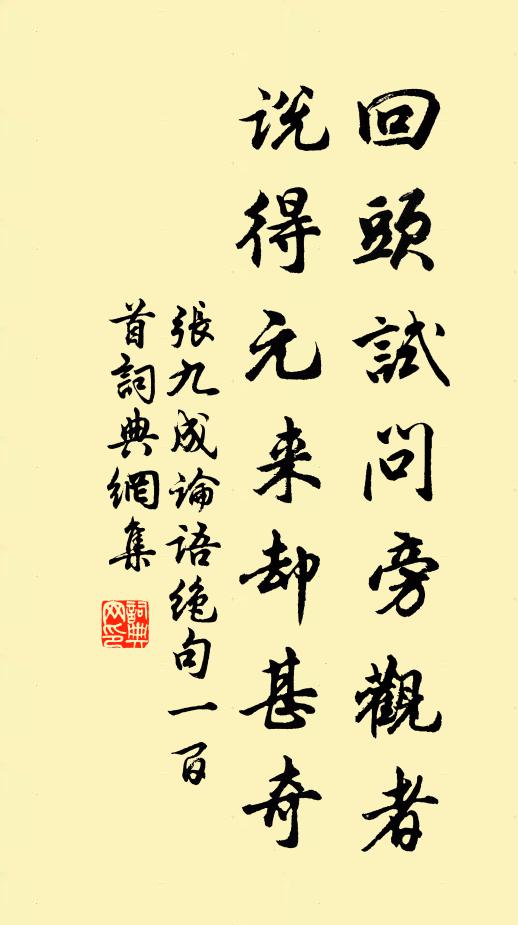 回頭試問旁觀者
说得元来却甚奇
張九成论语绝句一百
首詞典網集
詞典網印